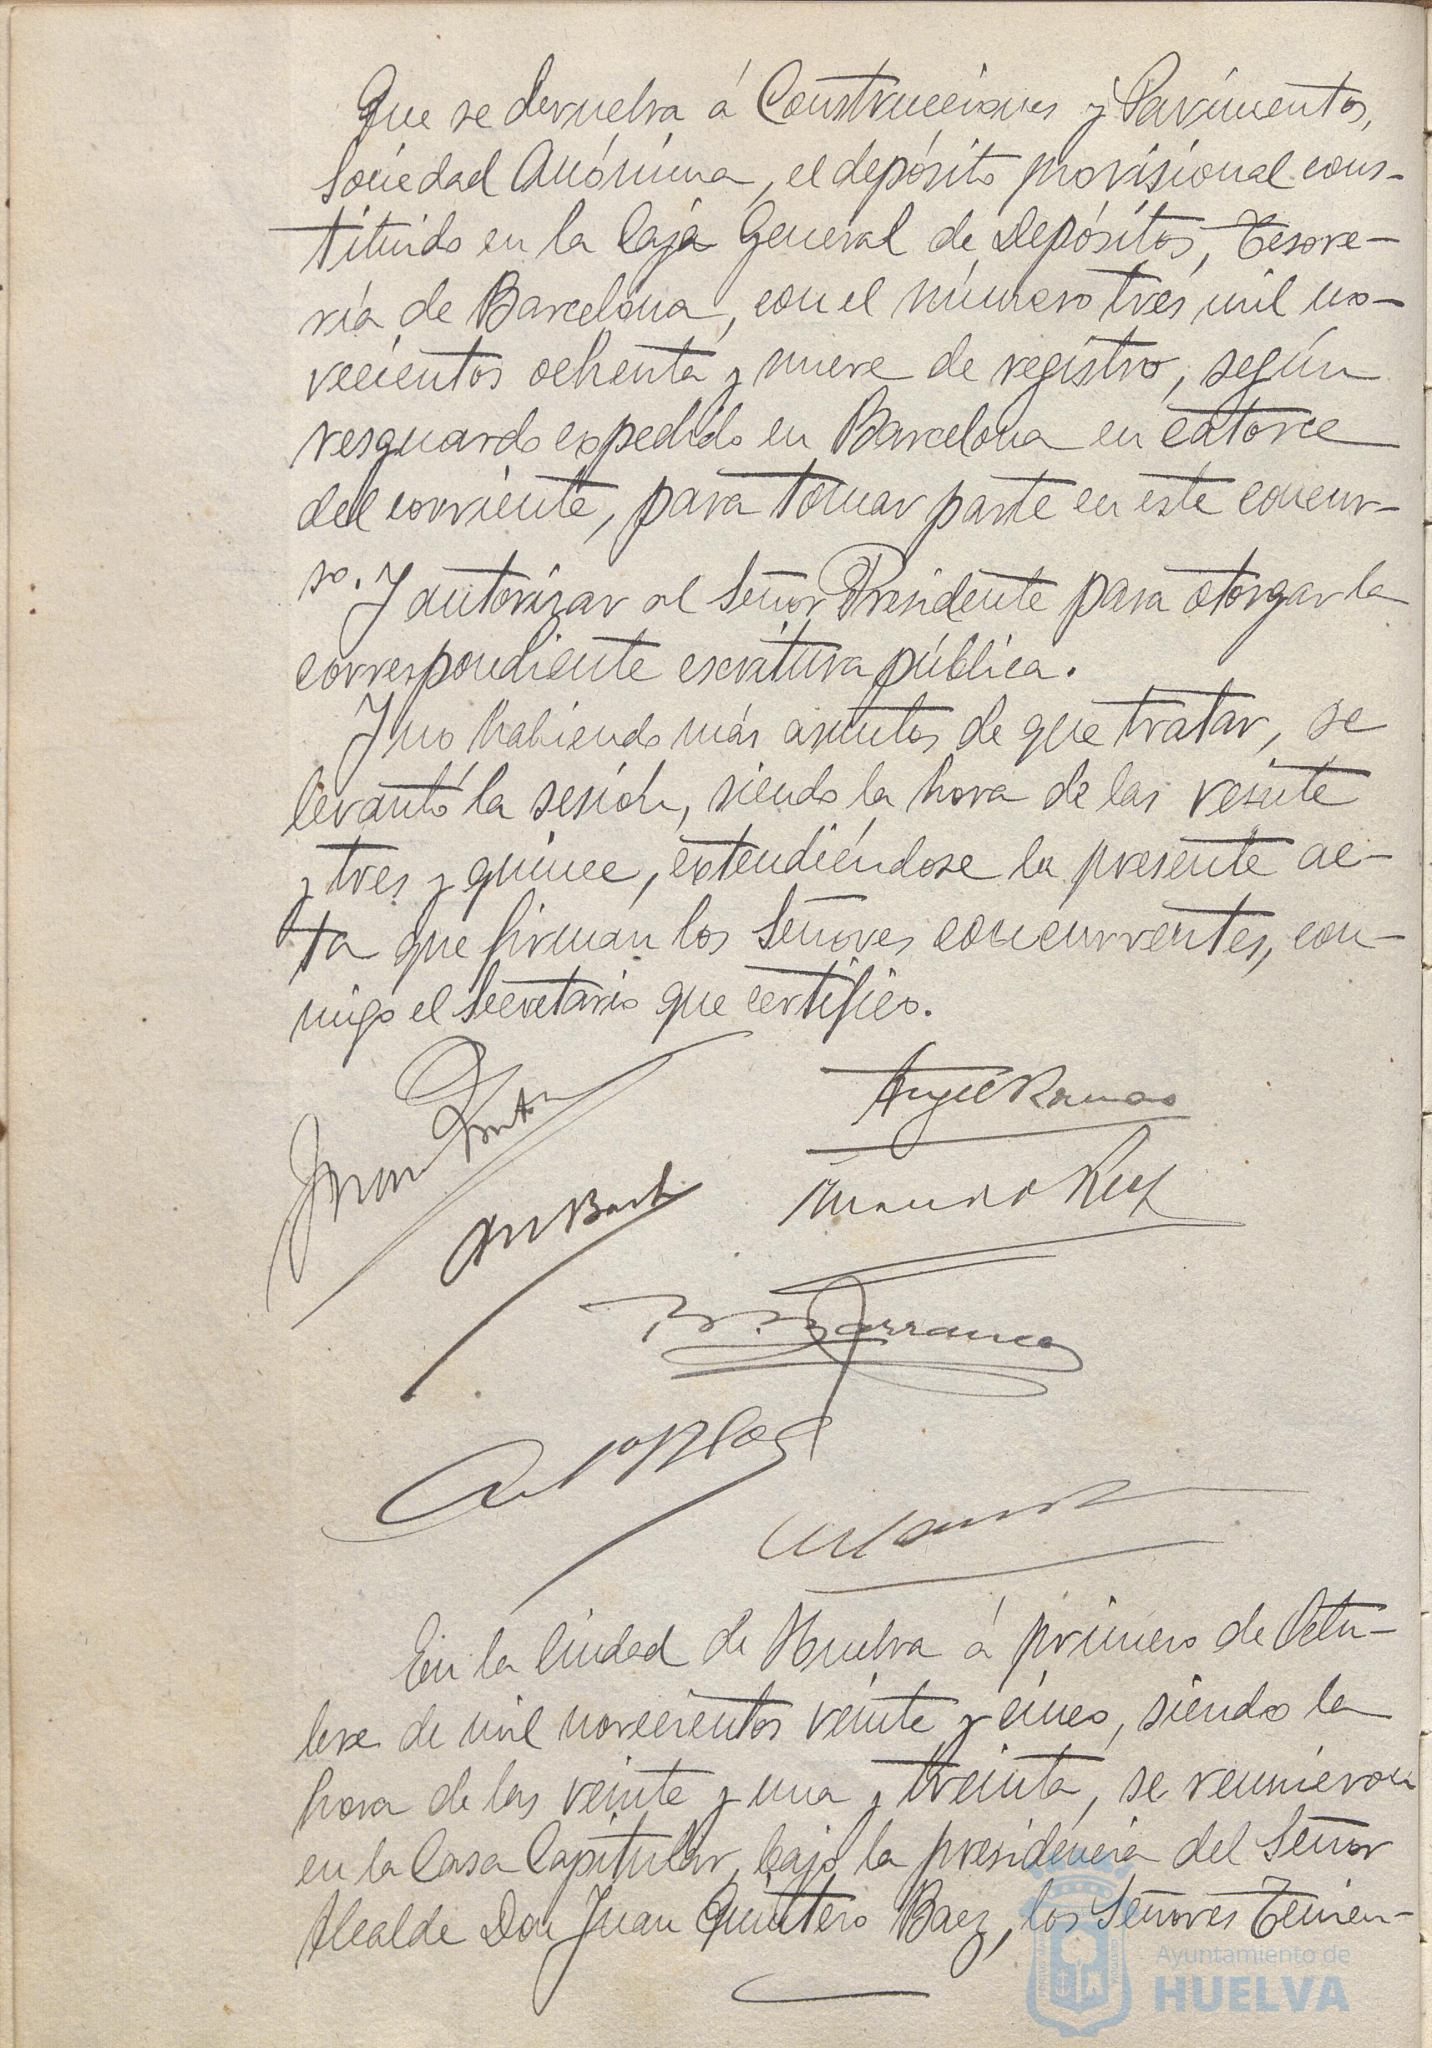 Que se devuelva á Construcciones y Pavimentos,
Sociedad Anónima, el depósito provisional cons-
tituido en la Caja General de Depósitos, Tesore-
ría de Barcelona, con el número tres mil no-
vecientos ochenta y nueve de registro, según
resguardo expedido en Barcelona en catorce
del corriente, para tomar parte en este concur-
so. Y autorizar al Señor Presidente para otorgar la
correspondiente escritura pública.
Y no habiendo más asuntos de que tratar, se
levantó la sesión, siendo la hora de las veinte
y tres y quince, extendiéndose la presente ac-
ta que firman los Señores concurrentes, con-
migo el Secretario que certifico.
Juan Quintero
Angel Ramos
Ruiz
Barranco
En la Ciudad de Huelva á primero de Octu-
bre de mil novecientos veinte y cinco, siendo la
hora de las veinte y una y treinta, se reunieron
en la Casa Capitular, bajo la presidencia del Señor
Alcalde Don Juan Quintero Baez, los Señores Tenien-
Ayuntamiento de
HUELVA